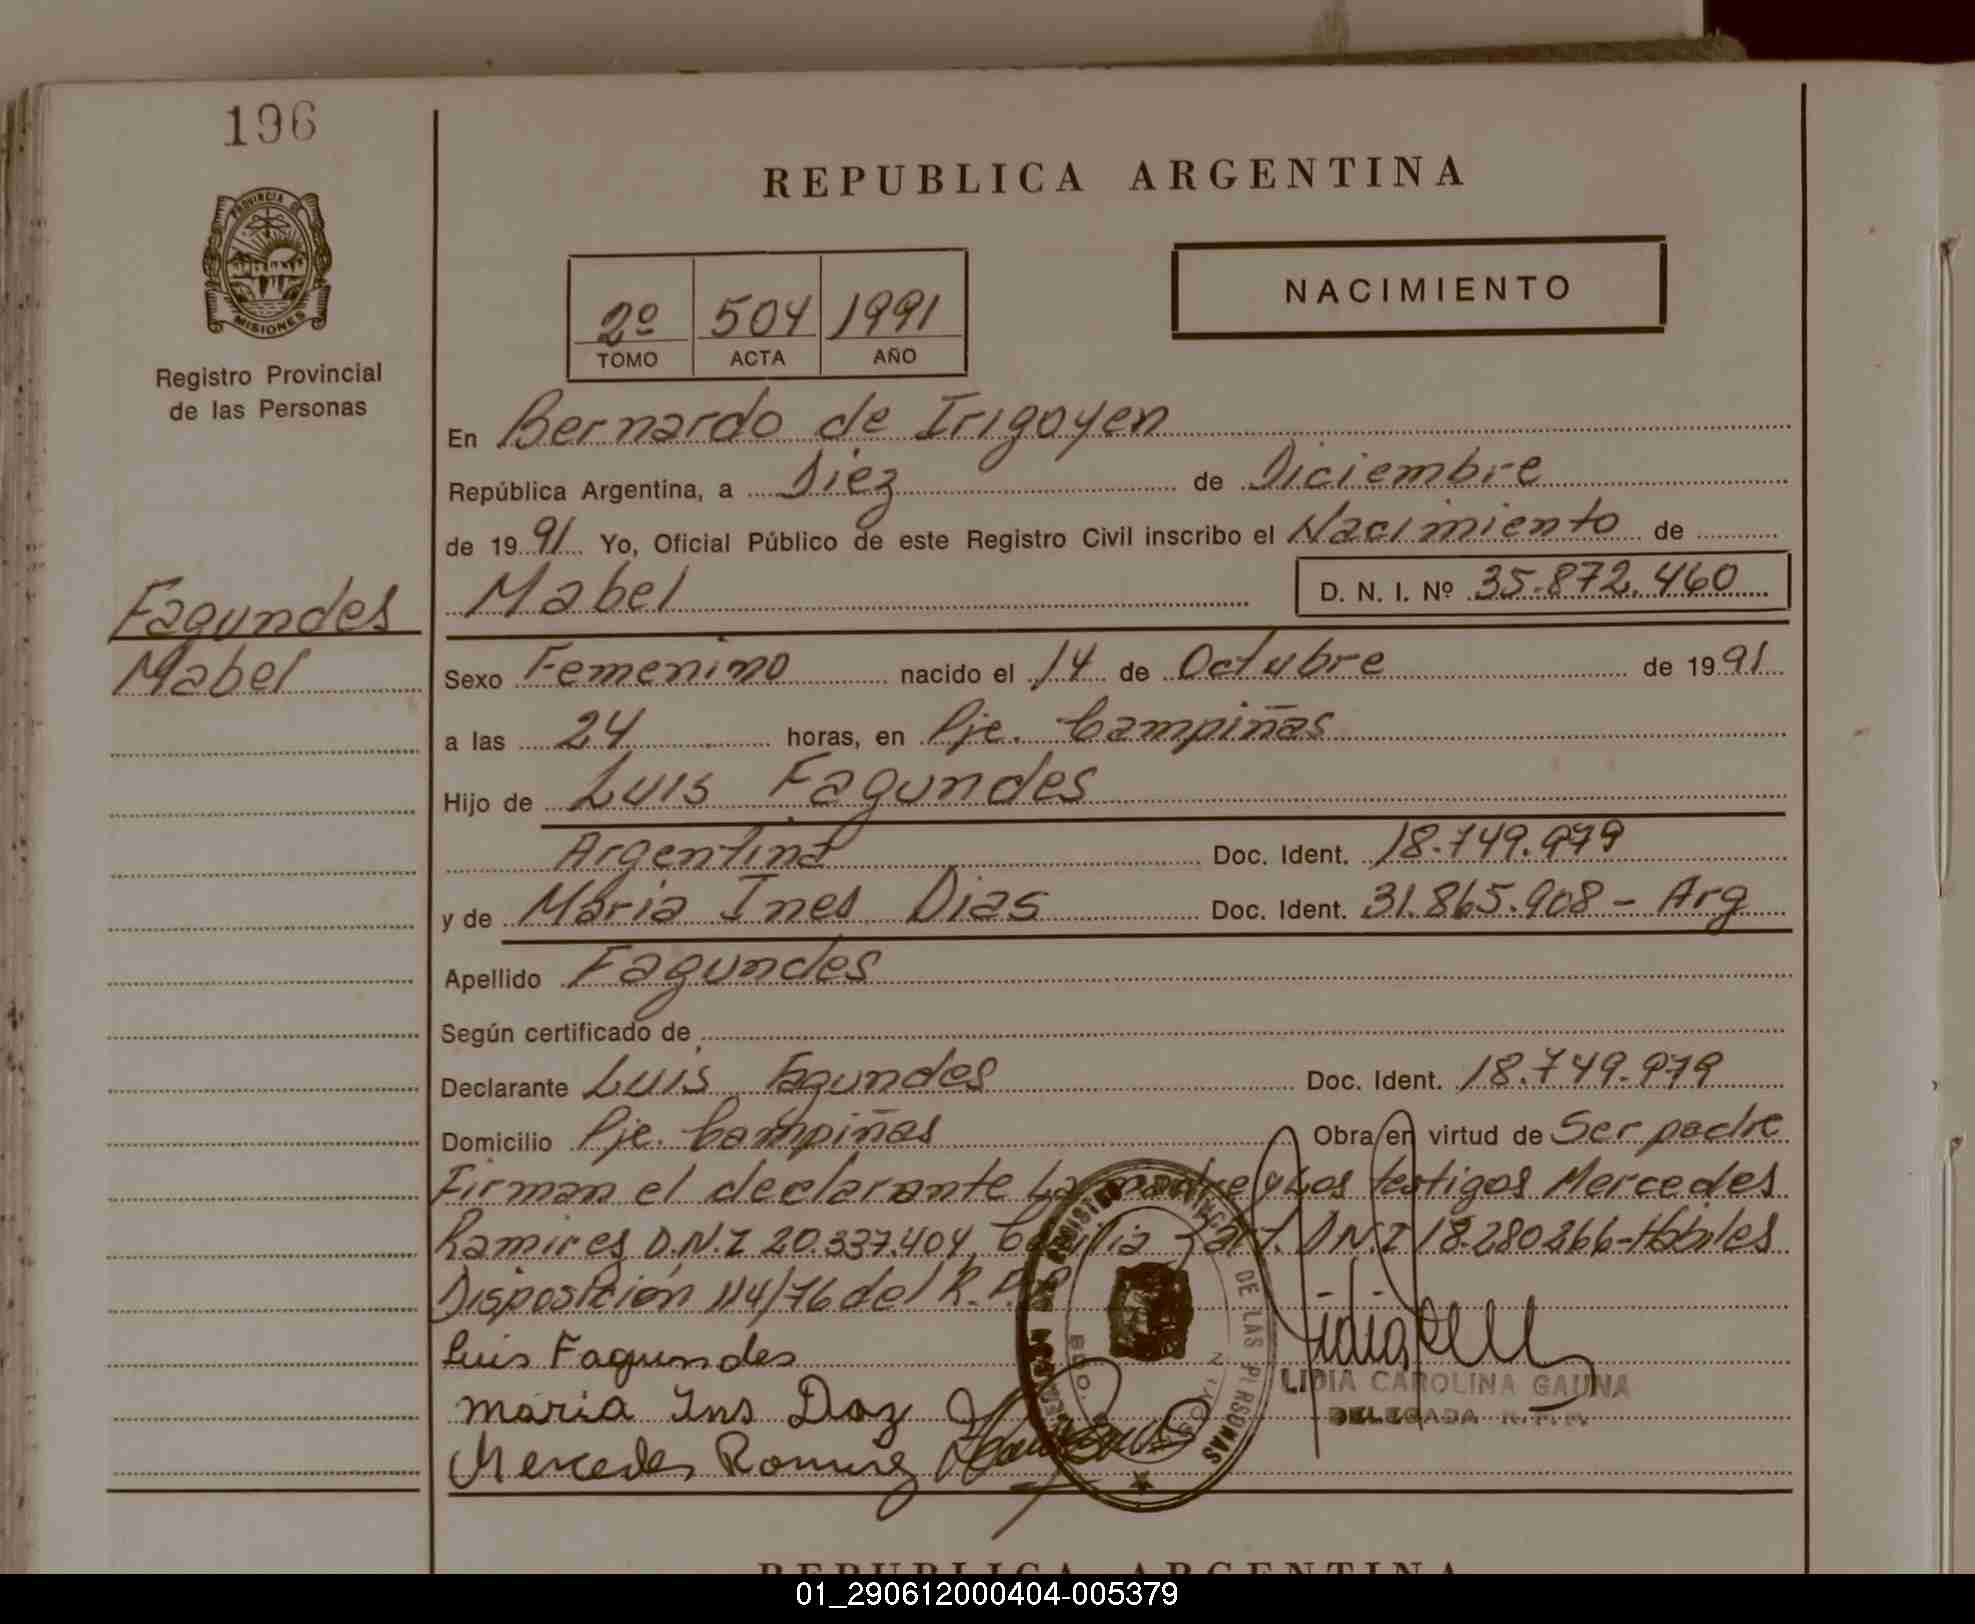 196
REPUBLICA ARGENTINA
PROVINCIA DE
MISIONES
Registro Provincial
de las Personas
2º 504 1991
TOMO ACTA AÑO
NACIMIENTO
En Bernardo de Irigoyen
República Argentina, a Diez de Diciembre
de 1991 Yo, Oficial Público de este Registro Civil inscribo el Nacimiento de
Mabel D. N. I. Nº 35.872.460
Fagundes
Mabel
Sexo Femenino nacido el 14 de Octubre de 1991
a las 24 horas, en Pje. Campiñas
Hijo de Luis Fagundes
Argentina Doc. Ident. 18.749.979
y de Maria Ines Dias Doc. Ident. 31.865.908 - Arg
Apellido Fagundes
Según certificado de
Declarante Luis Fagundes Doc. Ident. 18.749.979
Domicilio Pje. Campiñas Obra en virtud de Ser padre
Firman el declarante La madre y Los testigos Mercedes
Ramires D.N.I 20.337.404, D.N.I 18.280.266-Habiles
Disposición 114/76 del R.
Luis Fagundes
maria Ins Daz
Mercedes Romirez
DE LAS PERSONAS
LIDIA CAROLINA GAUNA
DELEGADA R.P.P.
REPUBLICA ARGENTINA
01_290612000404-005379